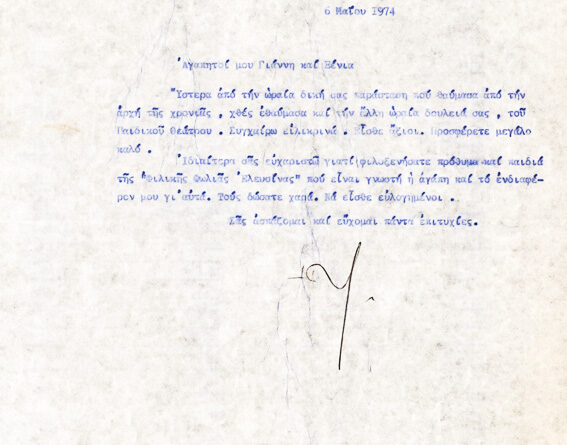 6 Μαΐου 1974
Ἀγαπητοί μου Γιάννη καί Ξένια
Ὕστερα ἀπό τήν ὡραία δική σας παράσταση πού θαύμασα ἀπό τήν
ἀρχή τῆς χρονιᾶς , χθές ἐθαύμασα καί τήν ἄλλη ὡραία δουλειά σας , τοῦ
Παιδικοῦ Θεάτρου . Συγχαίρω εἰλικρινά . Εἶσθε ἄξιοι. Προσφέρετε μεγάλο
καλό .
Ἰδιαίτερα σᾶς εὐχαριστῶ γιατί φιλοξενήσατε πρόθυμα καί παιδιά
τῆς "Φιλικῆς Φωλιᾶς Ἐλευσίνας" πού εἶναι γνωστή ἡ ἀγάπη καί τό ἐνδιαφέ-
ρον μου γι΄αὐτά. Τούς δώσατε χαρά. Νά εἶσθε εὐλογημένοι .
Σᾶς ἀσπάζομαι καί εὔχομαι πάντα ἐπιτυχίες.